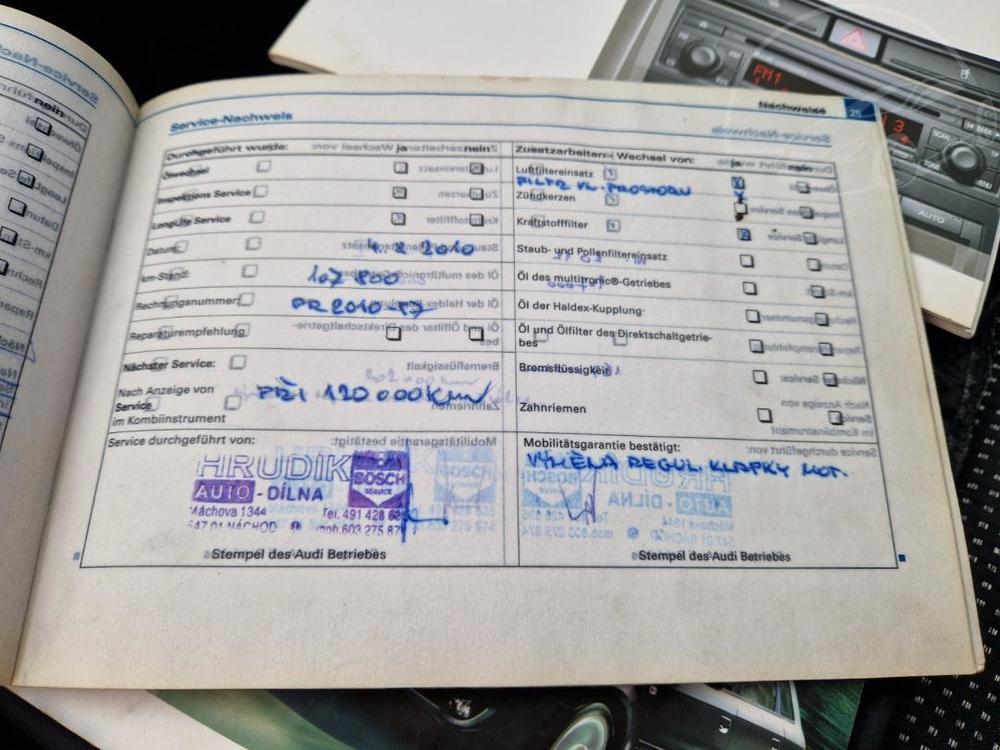 Service-Nachweis
Nachweise
25
Durchgeführt wurde:
Ölwechsel
Inspektions Service
LongLife Service
Datum:
4. 2 2010
km-Stand:
107 800
Rechnungsnummer:
PR2010-57
Reparaturempfehlung
Nächster Service:
Nach Anzeige von
Service
im Kombiinstrument
PŘI 120 000 Km
Service durchgeführt von:
HRUDIK
AUTO - DÍLNA
BOSCH
SERVICE
Máchova 1344
Tel. 491 428
547 01 NÁCHOD
mob. 603 275 87
Stempel des Audi Betriebes
Zusatzarbeiten: Wechsel von:
ja
nein
Luftfiltereinsatz
FILTR VL. PROSTORU
Zündkerzen
Kraftstofffilter
Staub- und Pollenfiltereinsatz
Öl des multitronic®-Getriebes
Öl der Haldex-Kupplung
Öl und Ölfilter des Direktschaltgetrie-
bes
Bremsflüssigkeit
Zahnriemen
Mobilitätsgarantie bestätigt:
VÝMĚNA REGUL. KLAPKY MOT.
Stempel des Audi Betriebes
FM1
SCAN
AUTO